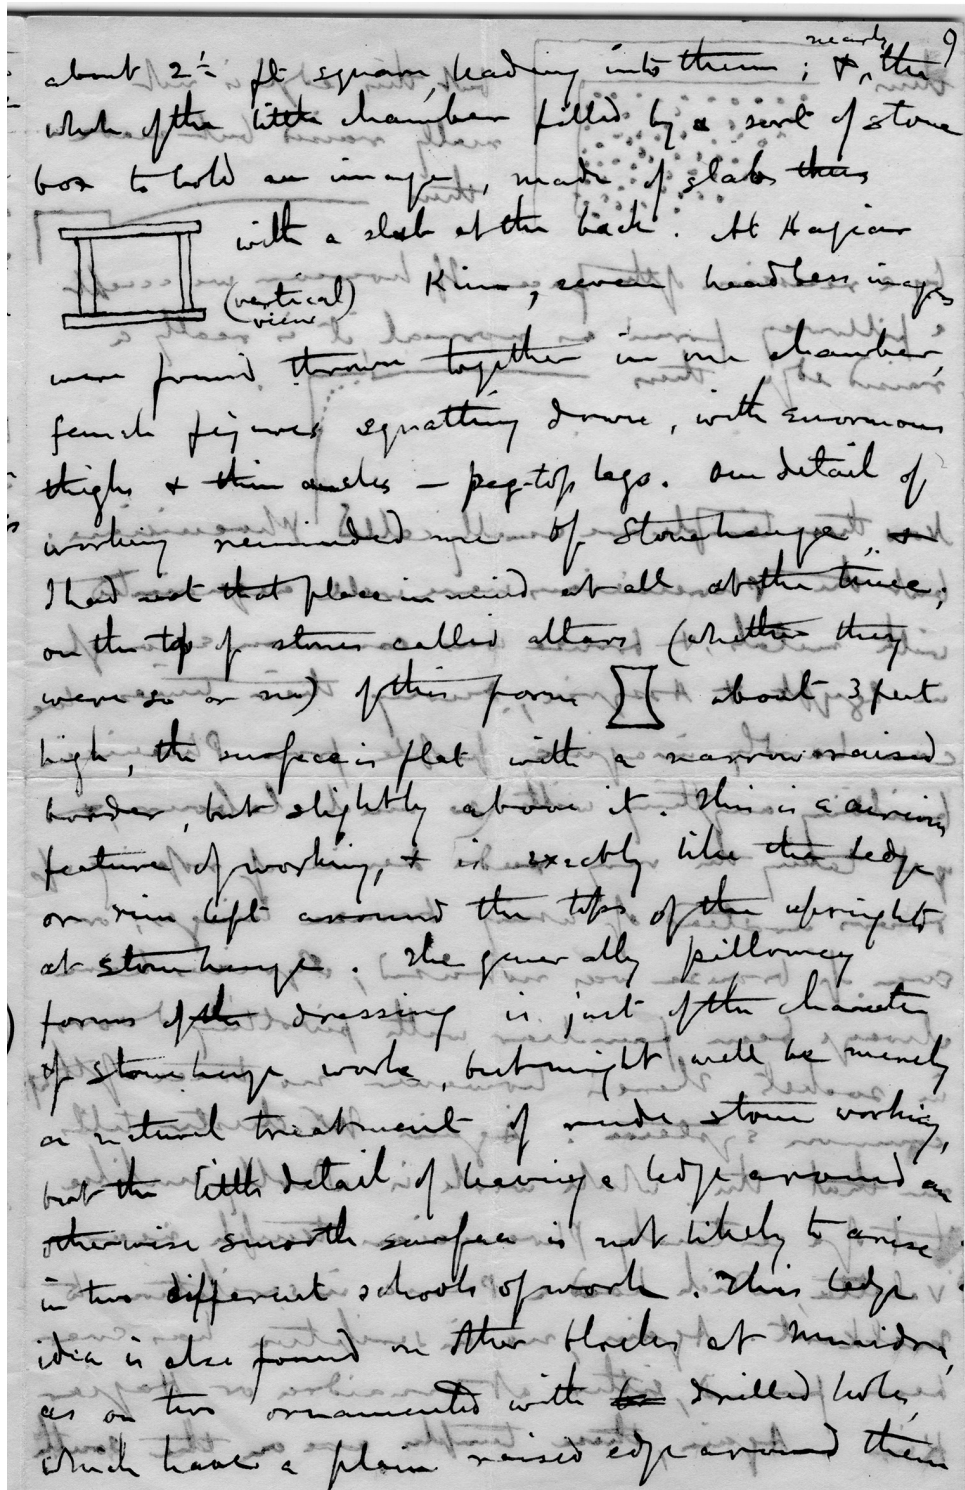 9
nearly
about 2½ ft square, leading into them; &, the
whole of the little chamber filled by a sort of stone
box to hold an image, made of slabs thus
with a slab at the back. At Hagiar
(vertical view) Kim, seven headless images
were found thrown together in one chamber,
female figures squatting down, with enormous
thighs & thin ancles — peg-top legs. One detail of
working reminded me of Stonehenge,
I had not that place in mind at all at the time;
on the top of stones called altars (whether they
were so or no) of this form about 3 feet
high, the surface is flat with a narrow raised
border, but slightly above it. This is a curious
feature of working, & is exactly like the ledge
or rim left around the tops of the uprights
at Stonehenge. The generally pillowey
forms of the dressing is just of the character
of Stonehenge work, but might well be merely
a natural treatment of rude stone working,
but the little detail of leaving a ledge around an
otherwise smooth surface is not likely to arise
in two different schools of work. This ledge
idea is also found on other blocks at Mnaidra,
as on two ornamented with drilled holes,
which have a plain raised edge around them